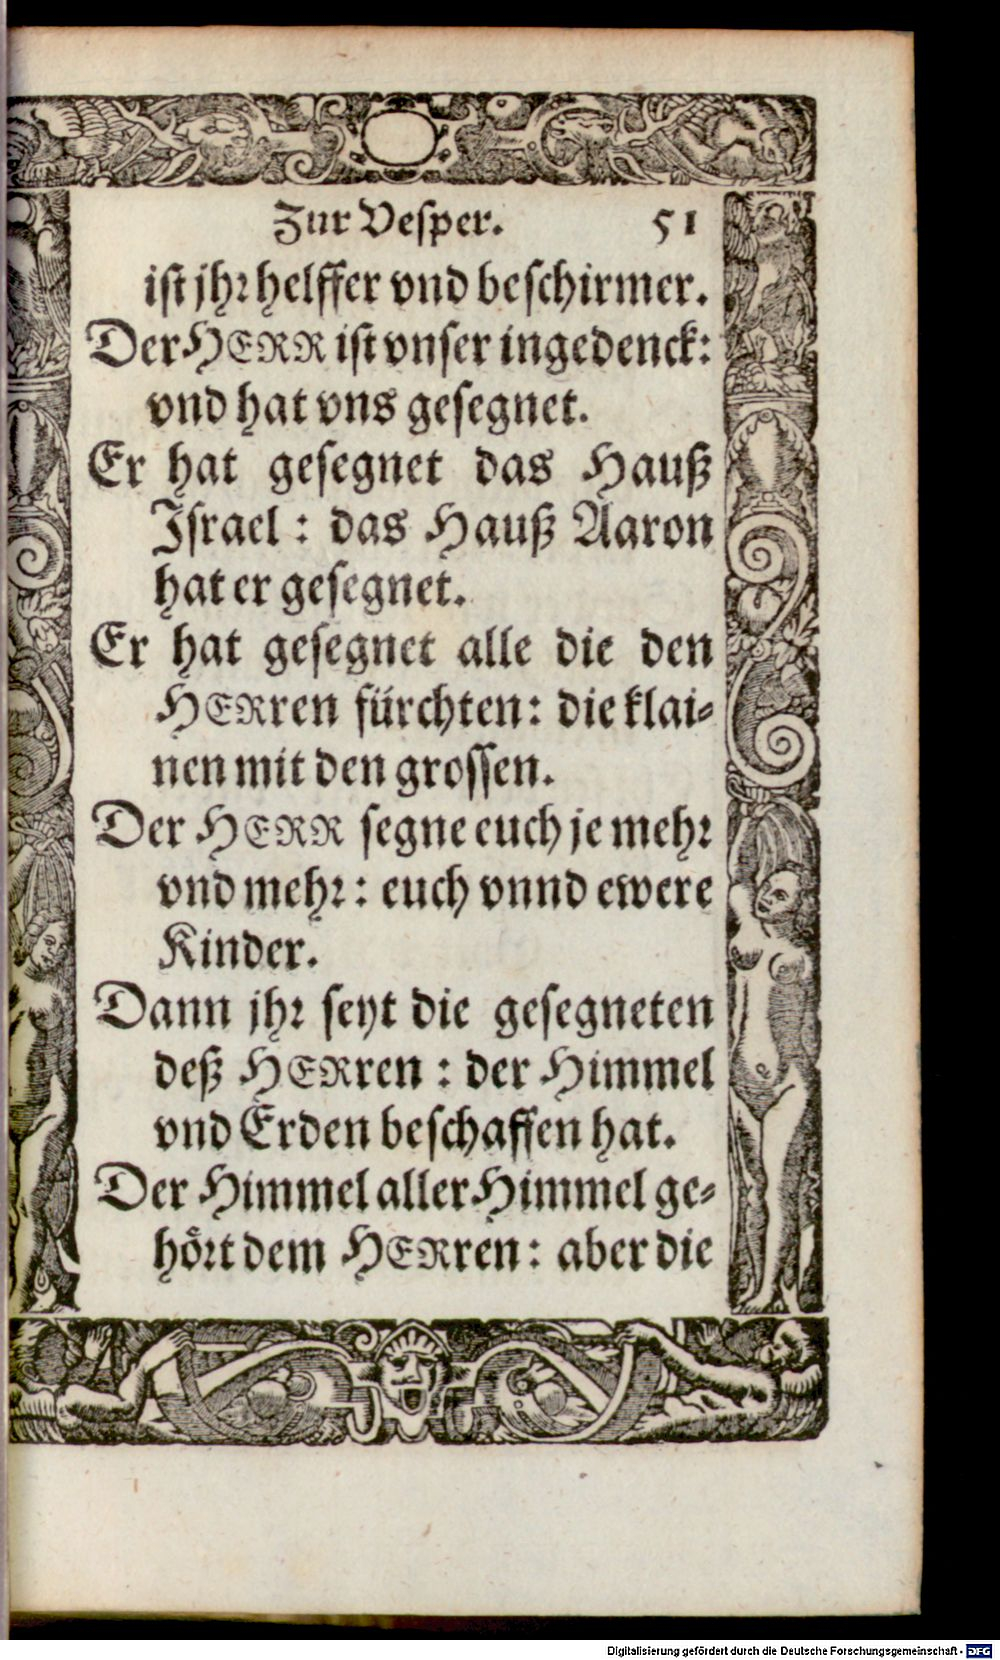 Zur Vesper. 51
ist jhr helffer vnd beschirmer.
Der HERR ist vnser ingedenck:
vnd hat vns gesegnet.
Er hat gesegnet das Hauß
Israel: das Hauß Aaron
hat er gesegnet.
Er hat gesegnet alle die den
HERren fürchten: die klai-
nen mit den grossen.
Der HERR segne euch je mehr
vnd mehr: euch vnnd ewere
Kinder.
Dann jhr seyt die gesegneten
deß HERren: der Himmel
vnd Erden beschaffen hat.
Der Himmel aller Himmel ge-
hört dem HERren: aber die
Digitalisierung gefördert durch die Deutsche Forschungsgemeinschaft - DFG